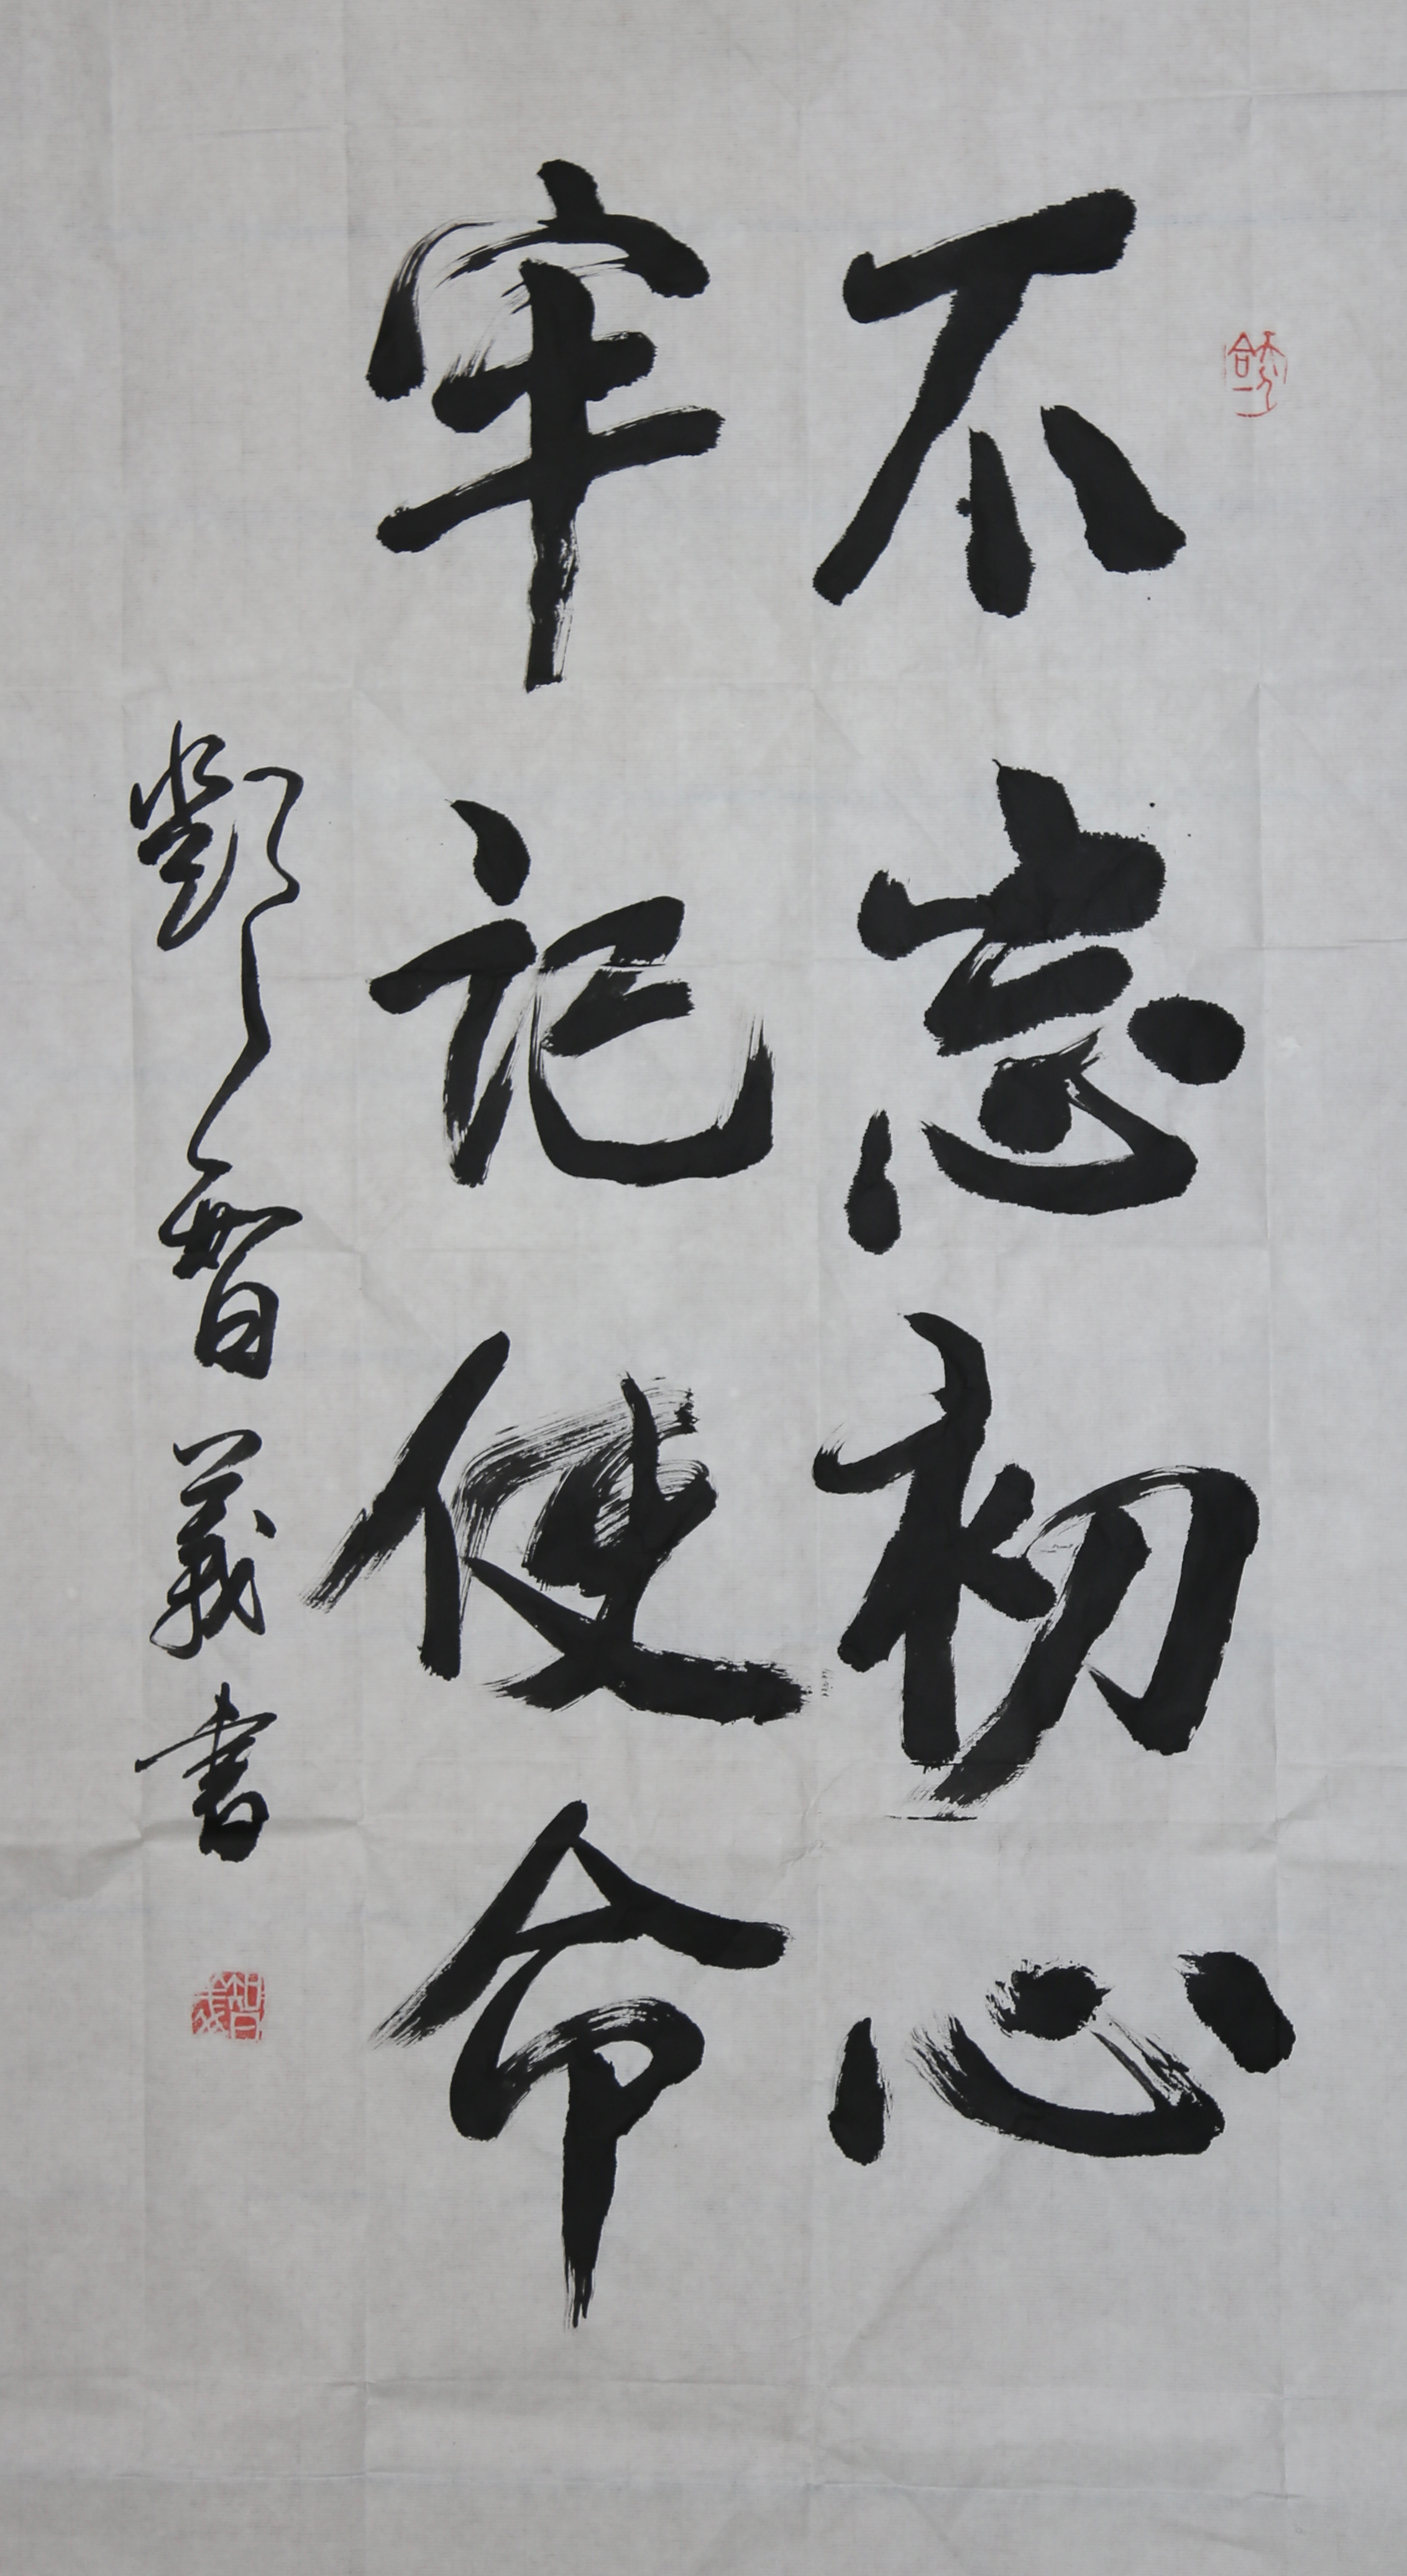 不忘初心
牢记使命
劉智義書
智義